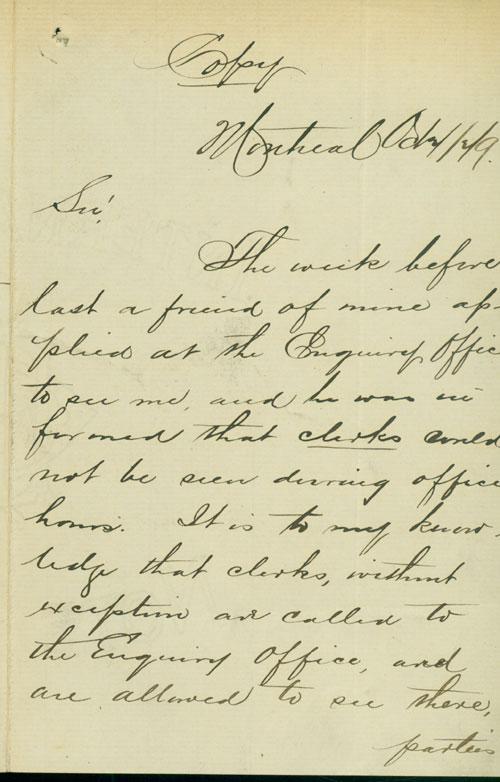 Copy
Montreal Oct
Sir!
The week before
last a friend of mine ap-
plied at the Enquiry Offic
to see me, and he was in
formed that clerks could
not be seen during office
hours. It is to my know-
ledge that clerks, without
exception are called to
the Enquiry Office, and
are allowed to see there,
parties